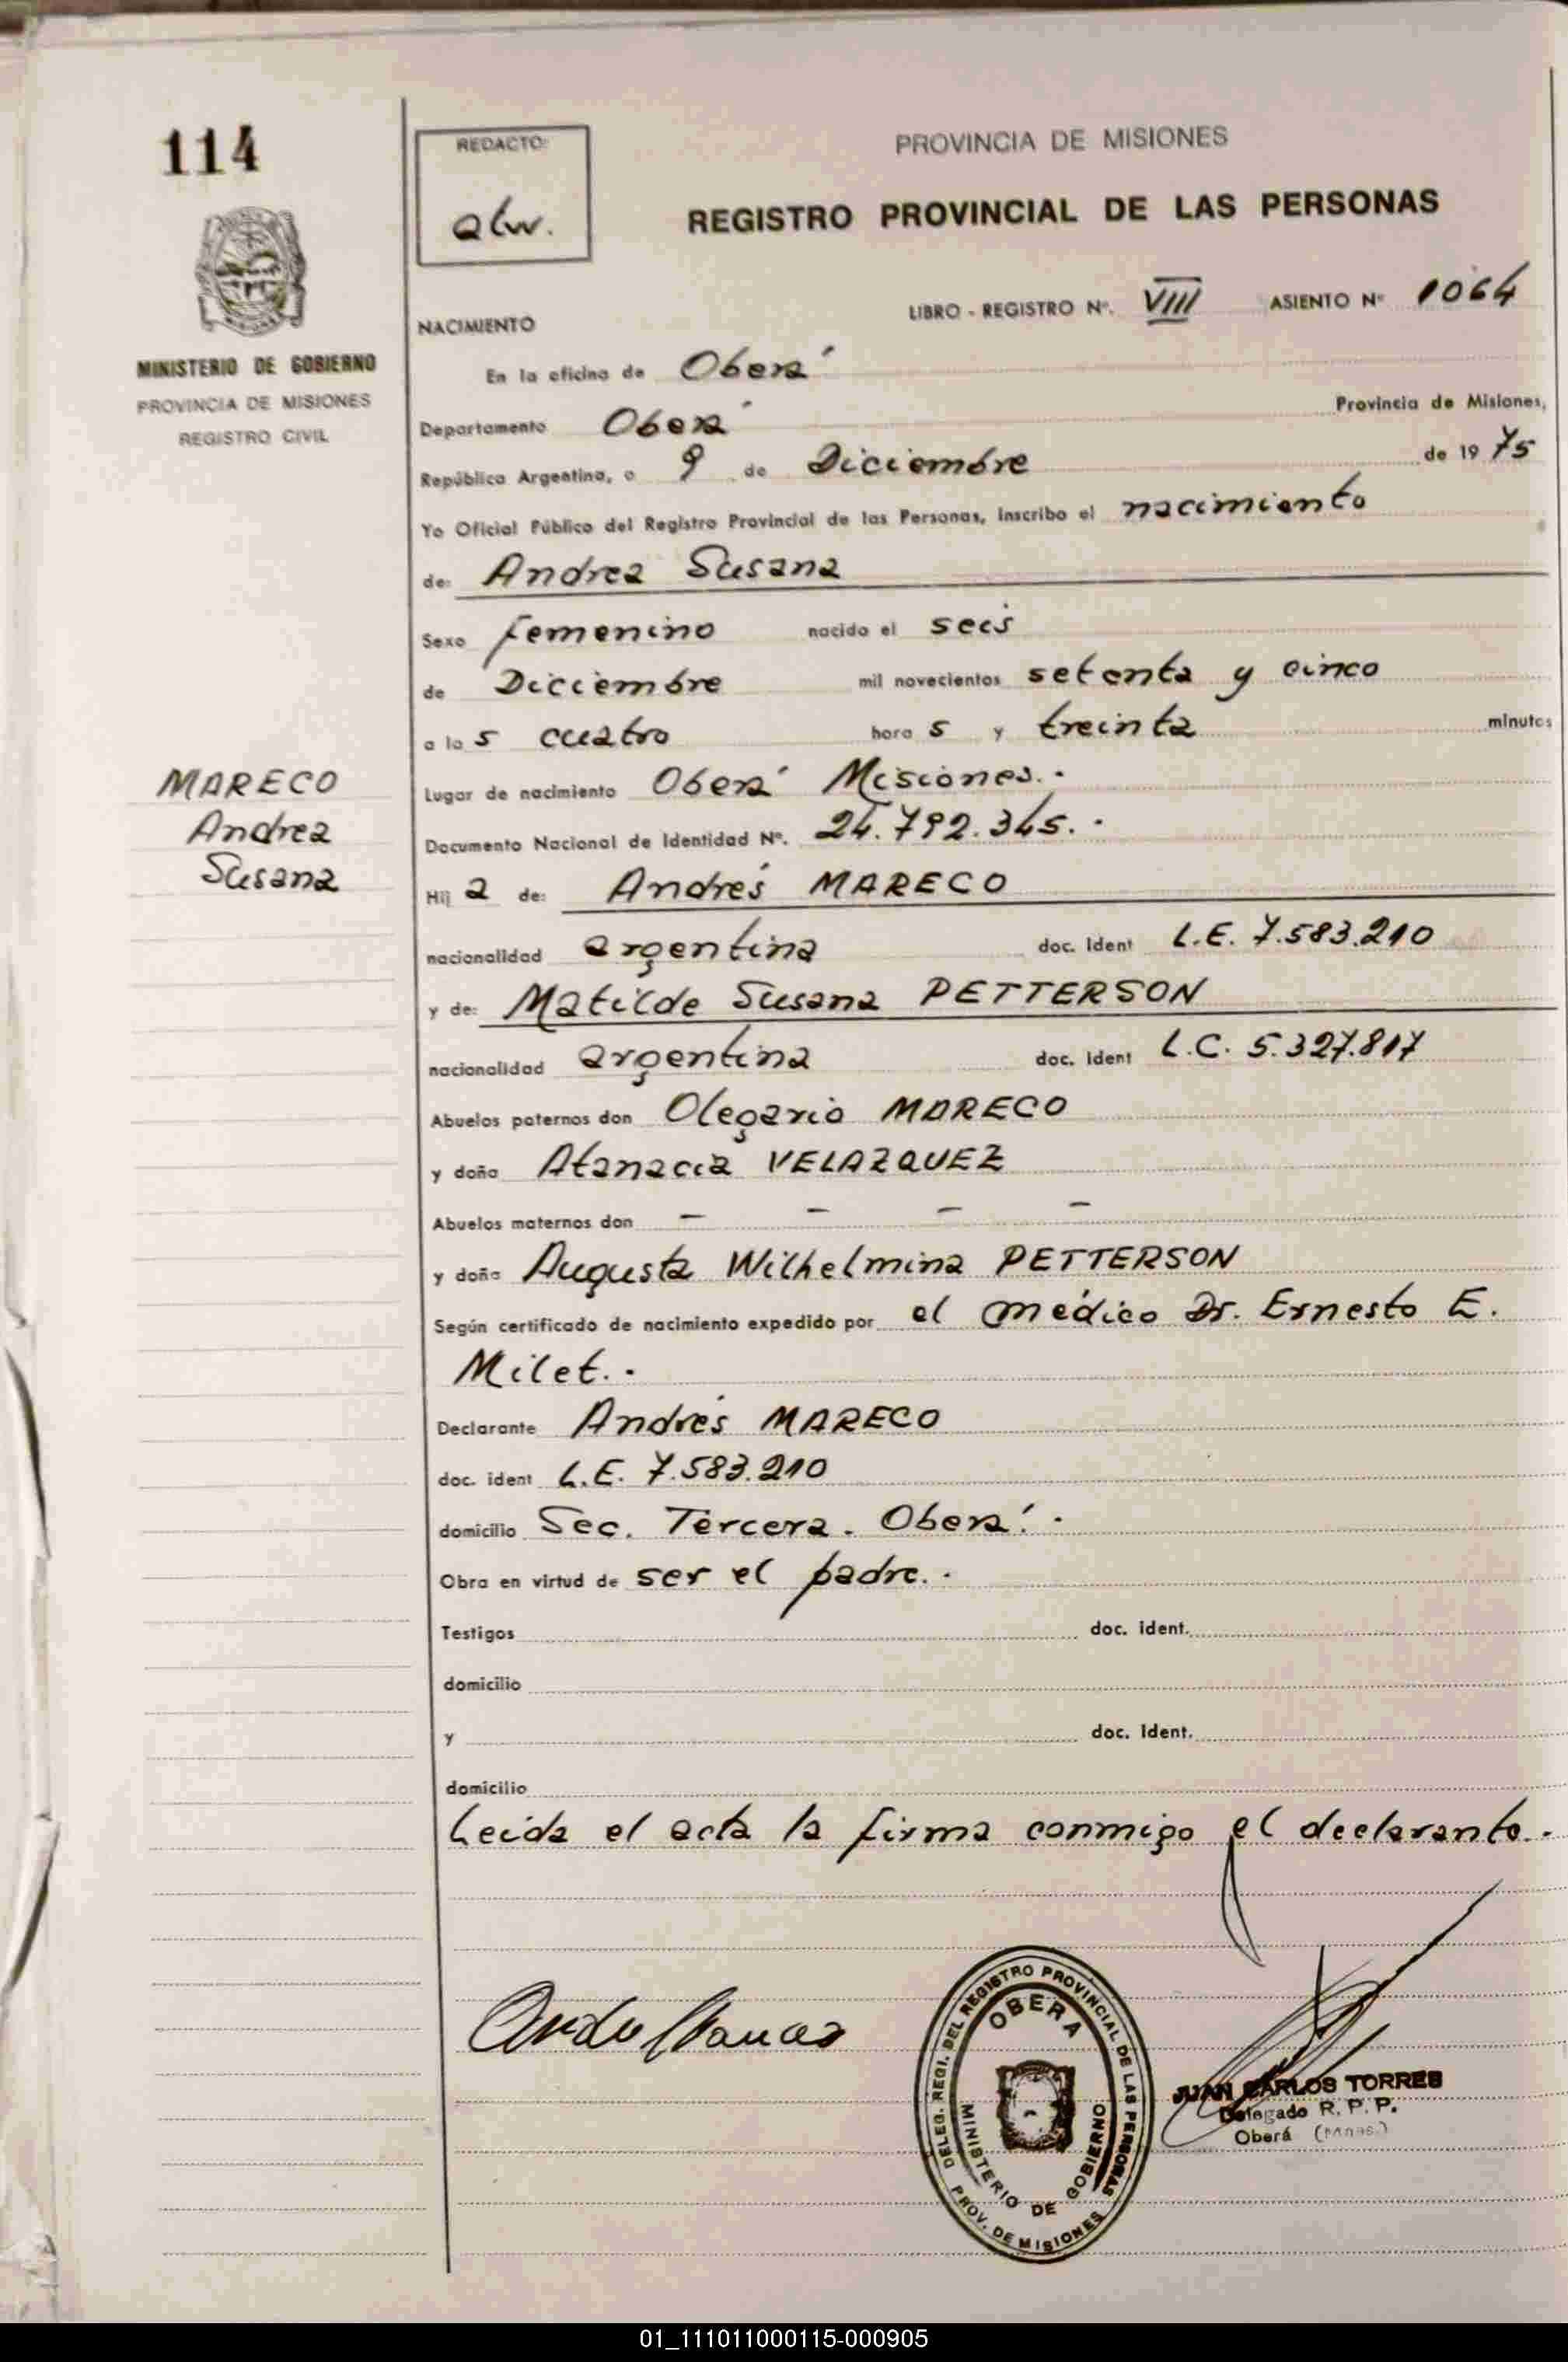 114
REDACTO:
atw.
PROVINCIA DE MISIONES
REGISTRO PROVINCIAL DE LAS PERSONAS
MINISTERIO DE GOBIERNO
PROVINCIA DE MISIONES
REGISTRO CIVIL
LIBRO - REGISTRO Nº. VIII ASIENTO Nº 1064
NACIMIENTO
En la oficina de Oberá
Departamento Oberá Provincia de Misiones,
República Argentina, a 9 de Diciembre de 1975
Yo Oficial Público del Registro Provincial de las Personas, inscribo el nacimiento
de: Andrea Susana
Sexo femenino nacido el seis
de Diciembre mil novecientos setenta y cinco
a las cuatro horas y treinta minutos
MARECO
Andrea
Susana
Lugar de nacimiento Oberá Misiones.-
Documento Nacional de Identidad Nº. 24.792.345.-
Hija de: Andrés MARECO
nacionalidad argentina doc. Ident L.E. 7.583.210
y de: Matilde Susana PETTERSON
nacionalidad argentina doc. Ident L.C. 5.327.817
Abuelos paternos don Olegario MARECO
y doña Atanacia VELAZQUEZ
Abuelos maternos don - - - -
y doña Augusta Wilhelmina PETTERSON
Según certificado de nacimiento expedido por el médico Dr. Ernesto E.
Milet.-
Declarante Andrés MARECO
doc. ident L.E. 7.583.210
domicilio Sec. Tercera. Oberá.-
Obra en virtud de ser el padre.-
Testigos doc. ident.
domicilio
y doc. ident.
domicilio
Leida el acta la firma conmigo el declarante.-
DELEG. REGI. DEL REGISTRO PROVINCIAL DE LAS PERSONAS
OBERA
MINISTERIO DE GOBIERNO
PROV. DE MISIONES
JUAN CARLOS TORRES
Delegado R. P. P.
Oberá (Mnes.)
01_111011000115-000905